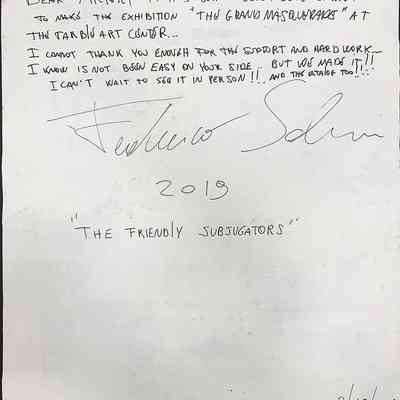 TO MAKE THE EXHIBITION "THE GRAND MASQUERADE" AT
THE TARBLE ART CENTER...
I CANNOT THANK YOU ENOUGH FOR THE SUPPORT AND HARD WORK...
I KNOW IS NOT BEEN EASY ON YOUR SIDE.. BUT WE MADE IT!!!
I CAN'T WAIT TO SEE IT IN PERSON!! AND THE CATALOG TOO!!
Federico Solmi
2019
"THE FRIENDLY SUBJUGATORS"